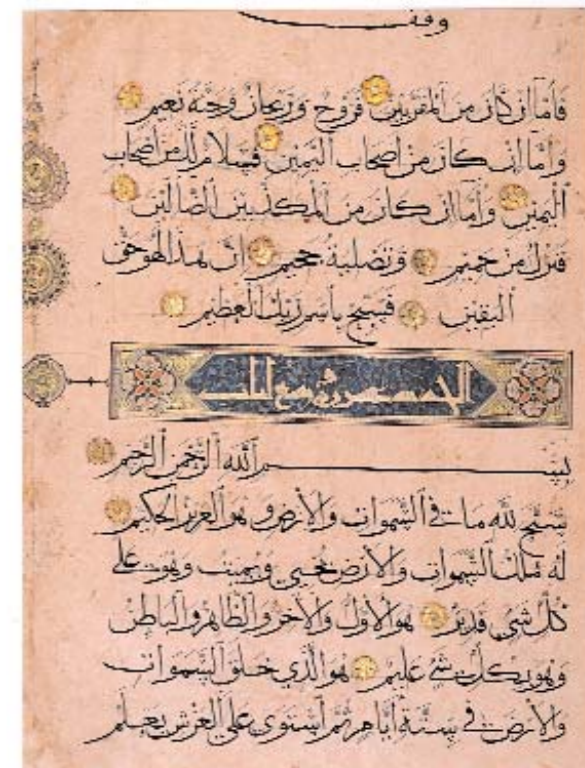 وقف
فأما إن كان من المقربين فروح وريحان وجنة نعيم
وأما إن كان من أصحاب اليمين فسلام لك من أصحاب
اليمين وأما إن كان من المكذبين الضالين
فنزل من حميم وتصلية جحيم إن هذا لهو حق
اليقين فسبح باسم ربك العظيم
بسم الله الرحمن الرحيم
سبح لله ما في السموات والأرض وهو العزيز الحكيم
له ملك السموات والأرض يحيي ويميت وهو على
كل شيء قدير هو الأول والآخر والظاهر والباطن
وهو بكل شيء عليم هو الذي خلق السموات
والأرض في ستة أيام ثم استوى على العرش يعلم